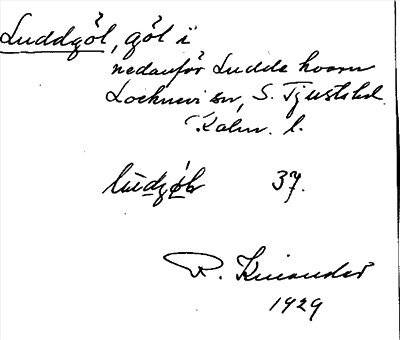 Luddgöl, göl i
nedanför Ludda kvarn
Locknevi sn, S. Tjusts hd.
Kalm. l.
37.
R. Kinander
1929